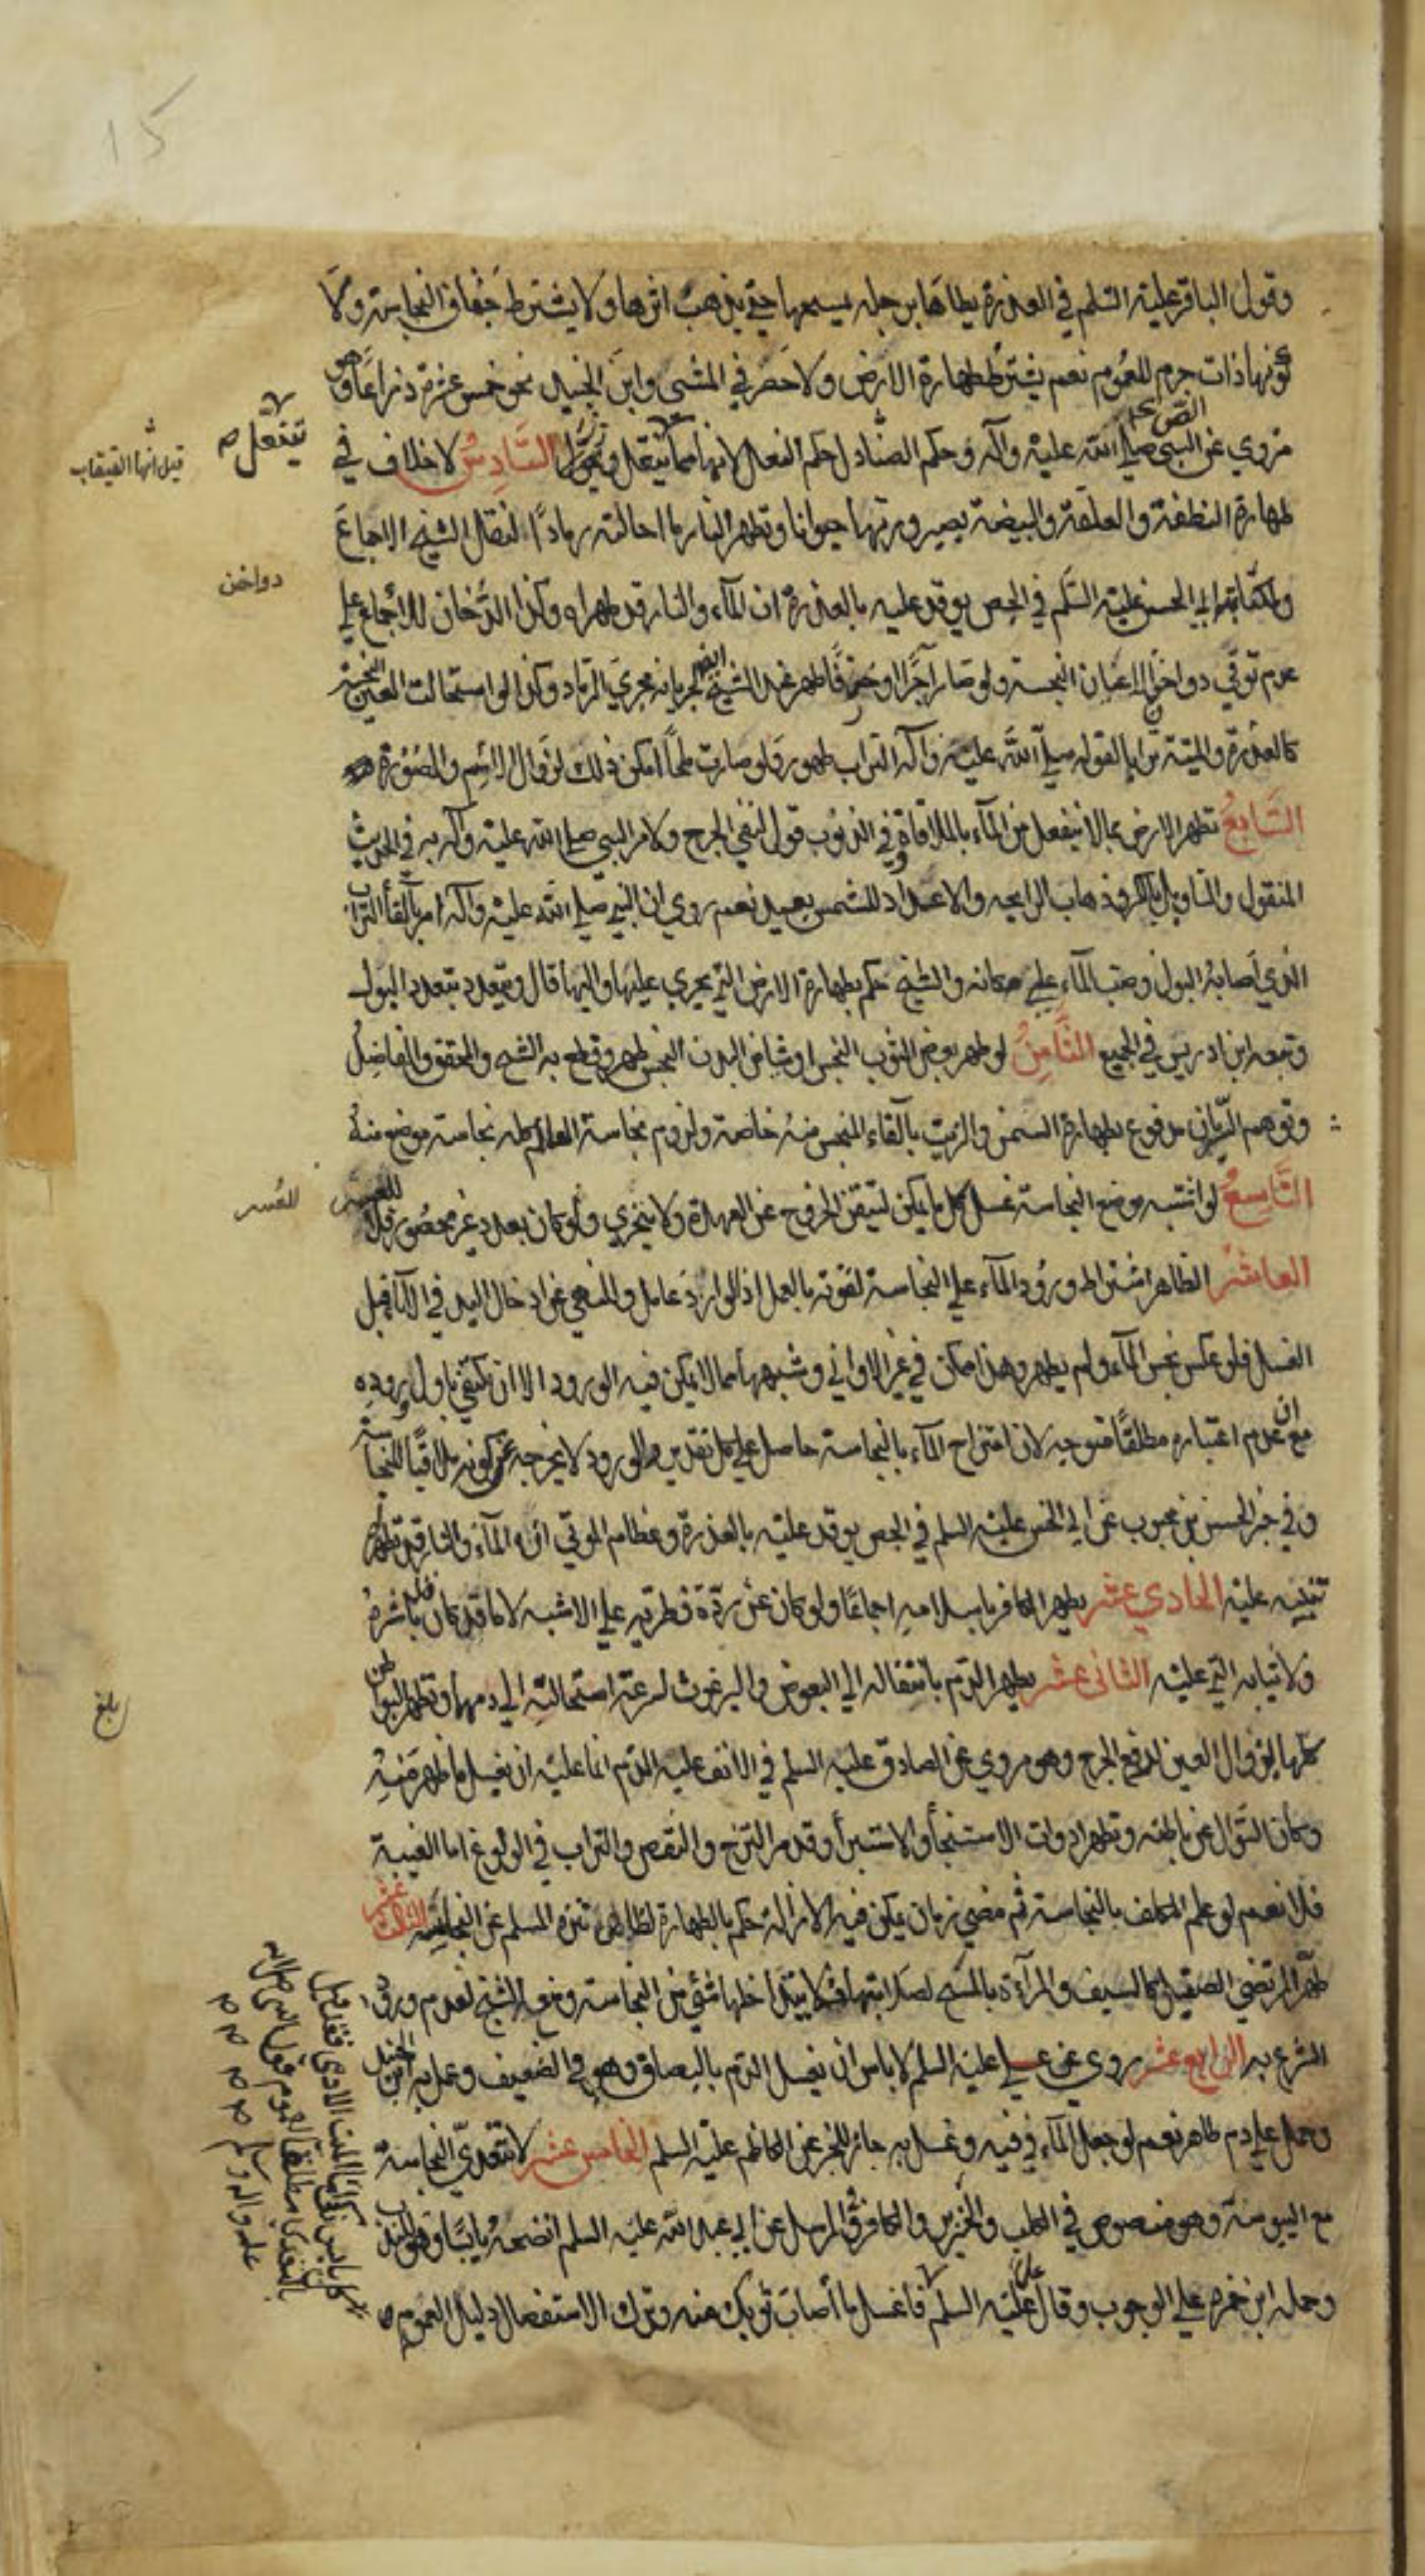 15
وقول الباقر عليه السلم في العذرة يطاها برجله يمسحها حتى يذهب اثرها ولا يشترط جفاف النجاسة ولا
كونها ذات جرم للعموم نعم يشترط طهارة الارض ولا حصر في المشي وابن الجنيد نحو خمس عشرة ذراعا وهو
مروي عن النبي صلى الله عليه وآله وحكم الصنادل حكم النعل لانها مما ينتعل السادس لا خلاف في
طهارة النطفة والعلقة والبيضة بصيرورتها حيوانا وتطهر النار ما احالته رمادا لنقل الشيخ الاجماع
ولكتابة ابي الحسن عليه السلم في الجص يوقد عليه بالعذرة ان الماء والنار قد طهراه وكذا الدخان للاجماع على
عدم توقي دواخن الاعيان النجسة ولو صار آجرا او خزفا طهر عند الشيخ لجريانه مجرى الرماد وكذا لو استحالت العين النجسة
كالعذرة والميتة ترابا لقوله صلى الله عليه وآله التراب طهور ولو صارت ملحا امكن ذلك لزوال الاسم والصورة
السابع تطهر الارض بما لا ينفعل من الماء بالملاقاة وفي الذنوب قول لنفي الحرج ولامر النبي صلى الله عليه وآله به في الحديث
المنقول والتاويل بالكر وذهاب الرايحه والاعداد للشمس بعيد نعم روي ان النبي صلى الله عليه وآله امر بالقا التراب
الذي اصابه البول وصب الماء على مكانه والشيخ حكم بطهارة الارض التي يجري عليها واليها قال ويتعدد بتعدد البول
وتبعه ابن ادريس في الجميع الثامن لو طهر بعض الثوب النجس او شا من البدن النجس طهر وقطع به الشيخ والمحقق والفاضل
وتوهم السريان مدفوع بطهارة السمن والزيت بالقاء النجس منه خاصة ولزوم نجاسة العالم كله نجاسة موضع منه
التاسع لو اشتبه موضع النجاسة غسل كل ما يمكن لتيقن الخروج عن العهدة ولا يتحرى ولو كان بعدد غير محصور فلا للعسر
العاشر الظاهر اشتراط ورود الماء على النجاسة لقوته بالعمل اذ الوارد عامل وللنهي عن ادخال اليد في الانا قبل
الغسل فلو عكس نجس الماء ولم يطهر وهذا ممكن في غير الاواني وشبهها مما لا يمكن فيه الورود الا ان نكتفي باول وروده
مع ان عدم اعتباره مطلقا متوجه لان امتزاج الماء بالنجاسة حاصل على كل تقدير والورود لا يخرجه عن كونه ملاقيا للنجاسة
وفي خبر الحسن بن محبوب عن ابي الحسن عليه السلم في الجص يوقد عليه بالعذرة وعظام الموتى ان الماء والنار قد طهراه
تنبيه عليه الحادي عشر يطهر الكافر باسلامه اجماعا ولو كان عن ردة فطرية على الاشبه لا ما قد كان باشره
ولا ثيابه التي عليه الثاني عشر يطهر الدم بانتقاله الى البعوض والبرغوث لسرعة استحالته الى دمها وتطهر البواطن
كلها بزوال العين لدفع الحرج وهو مروي عن الصادق عليه السلم في الانف عليه الدم انما عليه ان يغسل ما ظهر منه
وكأن السؤال عن باطنه وتطهر ادوات الاستنجا والاستبرأ وقد مر النزح والنقص والتراب في الولوغ اما الغيبة
فلا نعم لو علم المكلف بالنجاسة ثم مضى زمان يمكن فيه الازالة حكم بالطهارة لظاهر تنزه المسلم عن النجاسة الثالث عشر
طهر المرتضى الصقيل كالسيف والمرآة بالمسح لصلابتها فلا يتداخلها شئ من النجاسة ومنعه الشيخ لعدم ورود
الشرع به الرابع عشر روي عن علي عليه السلم لا باس ان يغسل الدم بالبصاق وهو في الضعيف وعمل به ابن الجنيد
وحمل على دم طاهر نعم لو جعل الماء في فيه وغسل به جاز للخبر عن الكاظم عليه السلم الخامس عشر لا تتعدى النجاسة
مع اليبوسة وهو منصوص في الكلب والخنزير والكافر في المرسل عن ابي عبد الله عليه السلم انضحه يابسا وهو للندب
وحمله ابن حمزه على الوجوب وقال عليه السلم فاغسل ما اصاب ثوبك منه وترك الاستفصال دليل العموم
ينتعل
قيل انها القبقاب
دواخن
للعسر
بلغ